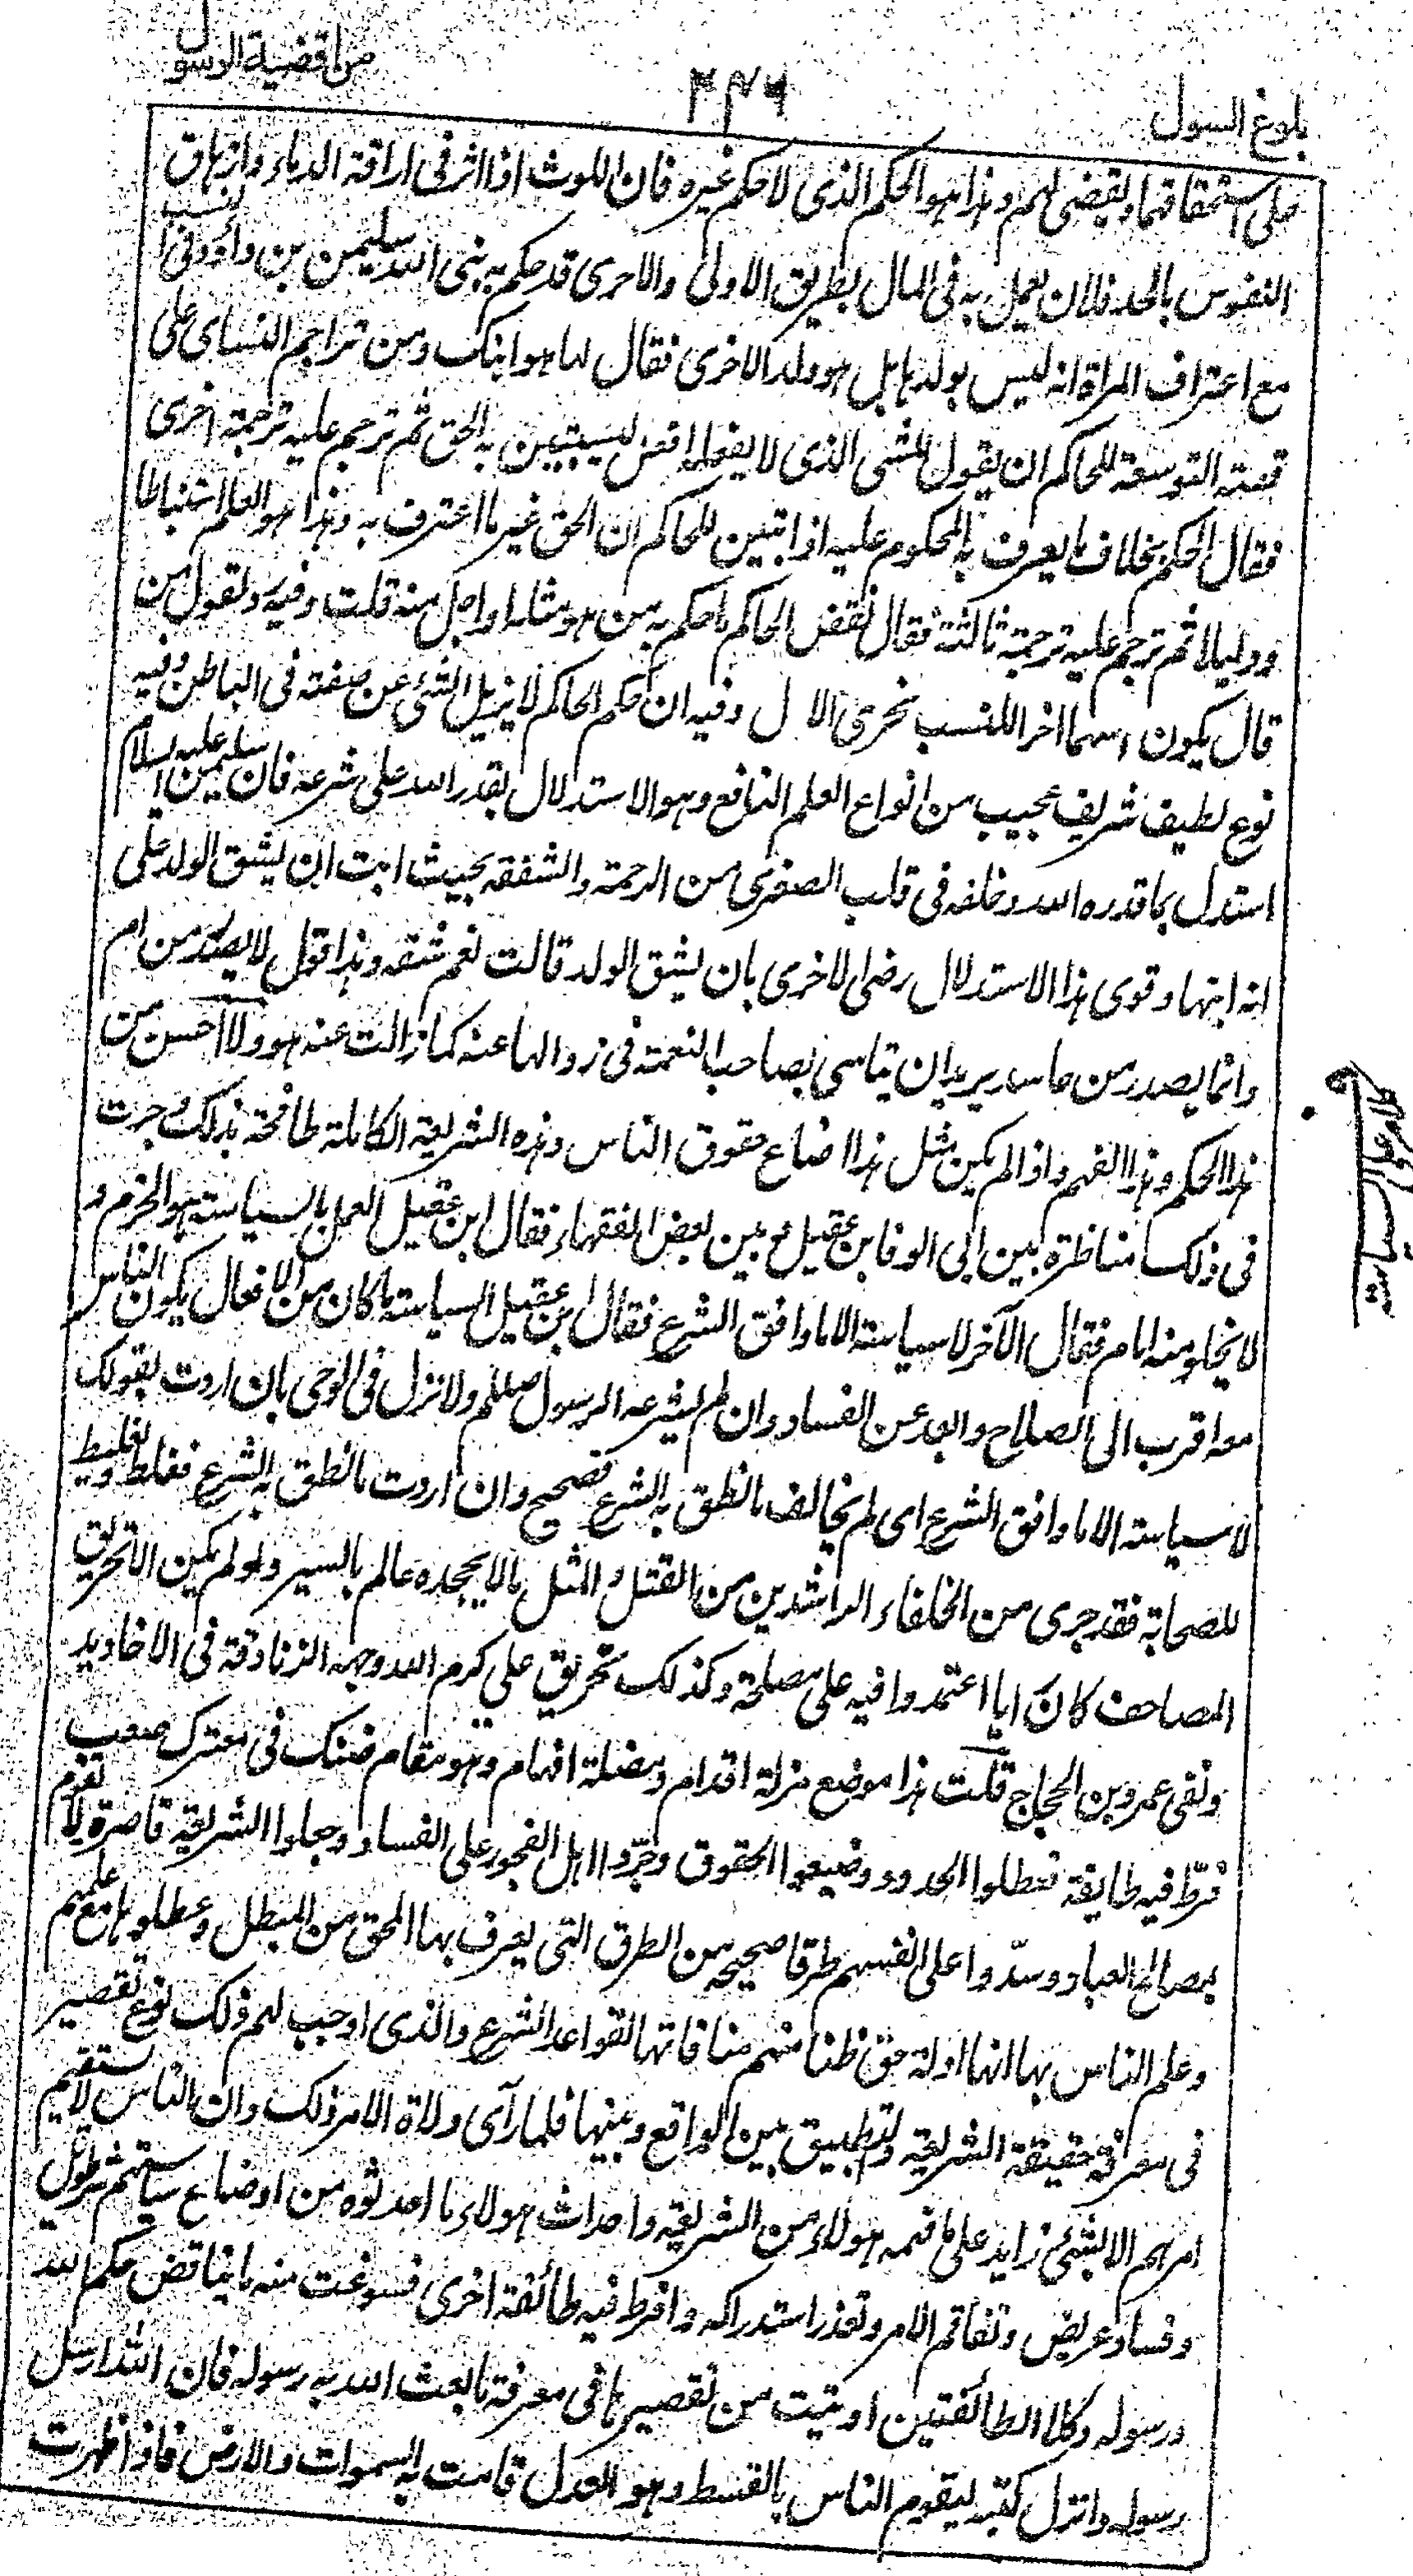 بلوغ السول
٣٣٦
من اقضية الرسول
على استحقاقها ويقضى لهم وهذا هو الحكم الذى لا حكم غيره فان اللوث اذا اثر فى اراقة الدماء وازهاق
النفوس بالحد فلان يعمل به فى المال بطريق الاولى والاحرى قد حكم به نبى الله سليمن بن داؤد فى النسب
مع اعتراف المراة انه ليس بولدها بل هو ولد الاخرى فقال لها هو ابنك ومن تراجم النساى على
قصته التوسعة للحاكم ان يقول للشى الذى لا يفعله افعل ليستبين به الحق ثم ترجم عليه ترجمة اخرى
فقال الحكم بخلاف ما يعرف به المحكوم عليه اذا تبين للحاكم ان الحق غير ما اعترف به وهذا هو العلم استنباطا
ودليلا ثم ترجم عليه ترجمة ثالثة فقال نقض الحاكم ما حكم به من هو مثله او اجل منه قلت وفيه رد لقول من
قال يكون اسهما اخر اللنسب نحرى الا ل وفيه ان حكم الحاكم لا يزيل الشئ عن صفته فى الباطن وفيه
نوع لطيف شريف عجيب من انواع العلم النافع وهو الاستدلال بقدر الله على شرعه فان سليمن عليه السلام
استدل بما قدره الله وخلفه فى قلب الصغرى من الرحمة والشفقه بحيث ابت ان يشق الولد على
انه ابنها وقوى هذا الاستدلال رضى الاخرى بان يشق الولد قالت نعم شقه وهذا قول لا يصدر من ام
وانما يصدر من حاسد يريد ان يتاسى بصاحب النعمة فى زوالها عنه كما زالت عنه هو ولا احسن من
هذا الحكم وهذا الفهم واذا لم يكن مثل هذا اضاع حقوق الناس وهذه الشريعة الكاملة طافحة بذلك وجرت
فى ذلك مناظرة بين ابى الوفا بن عقيل و بين بعض الفقهاء فقال ابن عقيل العمل بالسياسة هو الحزم و
لا يخلو منه امام فقال الآخر لا سياسة الا ما وافق الشرع فقال ابن عقيل السياسة ما كان من الافعال يكون الناس
معه اقرب الى الصلاح وابعد عن الفساد وان لم يشرعه الرسول صللم ولا نزل فى الوحى بان اردت بقولك
لا سياسة الا ما وافق الشرع اى لم يخالف ما نطق به الشرع فصحيح وان اردت ما نطق به الشرع فغلط وتغليط
للصحابة فقد جرى من الخلفاء الراشدين من القتل و المثل ما لا يجحده عالم بالسير ولو لم يكن الا تحريق
المصاحف كان رايا اعتمدوا فيه على مصلحة وكذلك تحريق على كرم الله وجهه الزنادقة فى الاخاديد
ونفى عمر وبن الحجاج قلت هذا موضع مزلة اقدام ومضلة افهام وهو مقام ضنك فى معترك صعب
فرّط فيه طايفة فعطلوا الحدود وضيعوا الحقوق وجرّوا اهل الفجور على الفساد وجعلوا الشريعة قاصرة لا تقوم
بمصالح العباد وسدّوا على انفسهم طرقا صحيحة من الطرق التى يعرف بها المحق من المبطل وعطلوها مع علمهم
وعلم الناس بها انها ادلة حق ظنا منهم منافاتها لقواعد الشرع والذى اوجب لهم ذلك نوع تقصير
فى معرفة حقيقة الشريعة والتطبيق بين الواقع وبينها فلما رآى ولاة الامر ذلك وان الناس لا يستقيم
امرهم الا بشئ زايد على ما فهمه هولاء من الشريعة واحداث هولاء ما احدثوه من اوضاع سياستهم شر طويل
وفساد عريض وتفاقم الامر وتعذر استدراكه وافرط فيه طائفة اخرى فسوغت منه ما يناقض حكم الله
ورسوله وكلا الطائفتين اوتيت من تقصيرها فى معرفة ما بعث الله به رسوله فان الله ارسل
رسوله وانزل كتبه ليقوم الناس بالقسط وهو العدل قامت به السموات والارض فاذا ظهرت